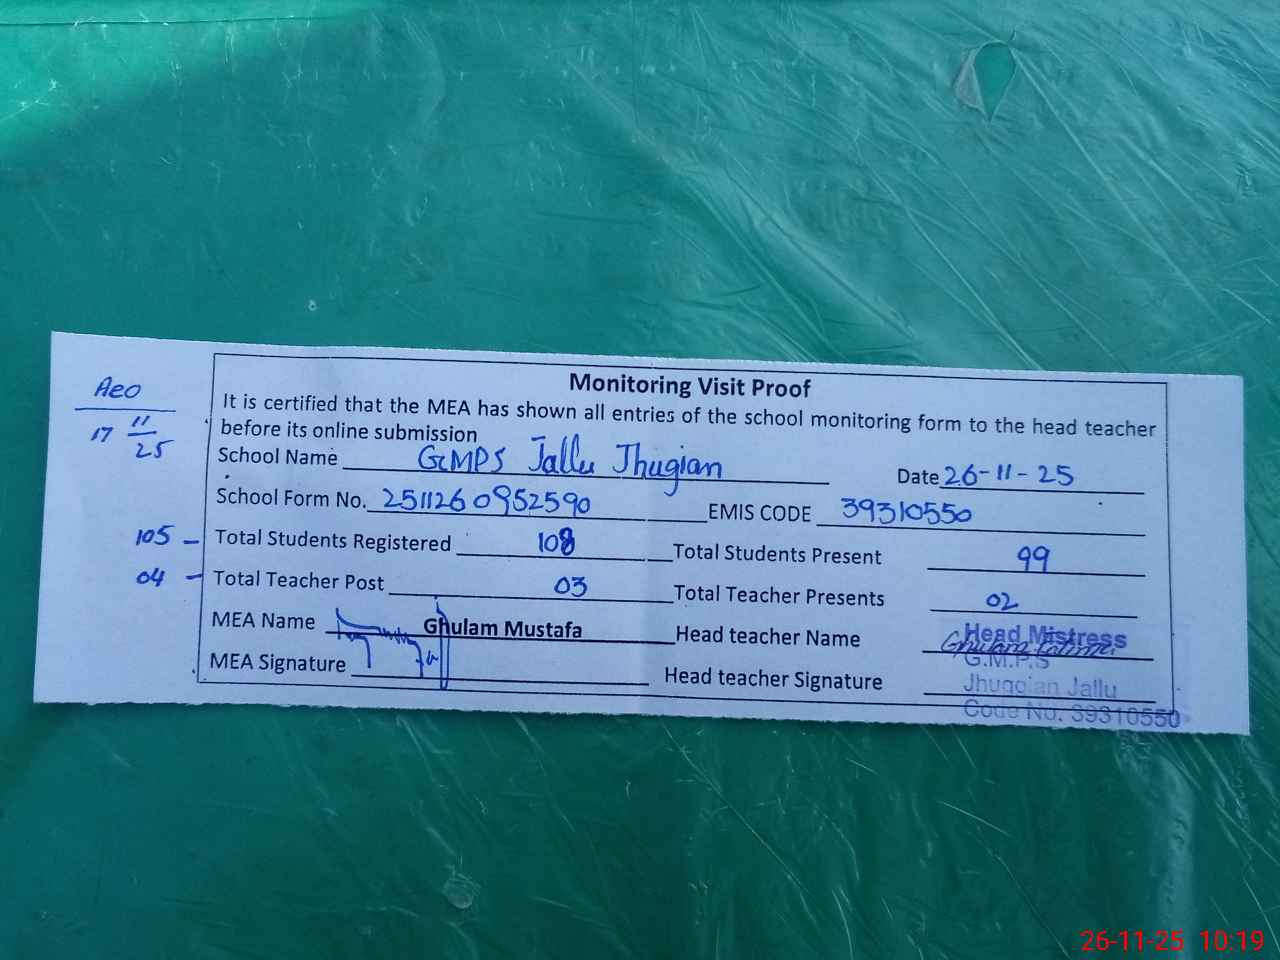 Monitoring Visit Proof
It is certified that the MEA has shown all entries of the school monitoring form to the head teacher
before its online submission
School Name GMPS Jallu Jhugian Date 26-11-25
School Form No. 2511260952590 EMIS CODE 39310550
Total Students Registered 108 Total Students Present 99
Total Teacher Post 03 Total Teacher Presents 02
MEA Name Ghulam Mustafa Head teacher Name Ghulam Fatima
MEA Signature Head teacher Signature
Head Mistress
G.M.P.S
Jhugian Jallu
Code No. 39310550
Aeo
17 11
25
105 -
04 -
26-11-25 10:19